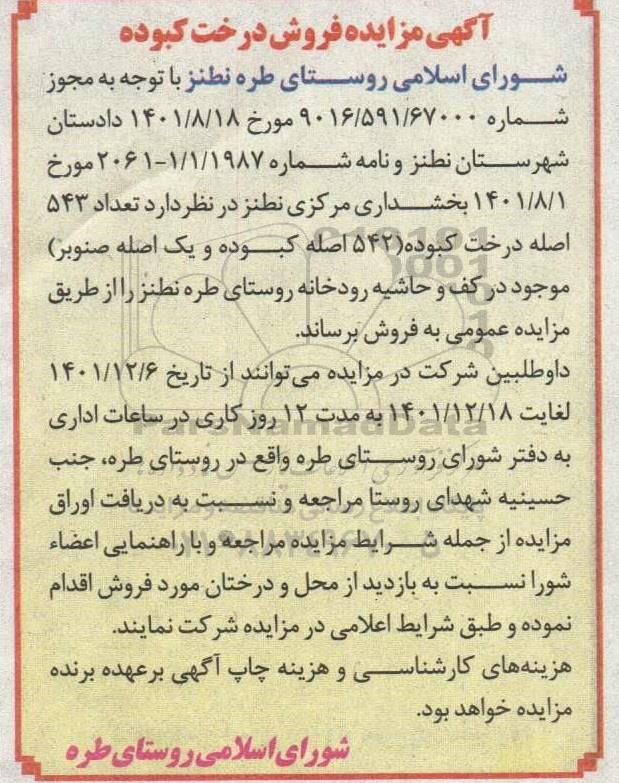 آگهی مزایده فروش درخت کبوده
شورای اسلامی روستای طره نطنز با توجه به مجوز
شماره ۹۰۱۶/۵۹۱/۶۷۰۰۰ مورخ ۱۴۰۱/۸/۱۸ دادستان
شهرستان نطنز و نامه شماره ۲۰۶۱-۱/۱/۱۹۸۷ مورخ
۱۴۰۱/۸/۱ بخشداری مرکزی نطنز در نظر دارد تعداد ۵۴۳
اصله درخت کبوده(۵۴۲ اصله کبوده و یک اصله صنوبر)
موجود در کف و حاشیه رودخانه روستای طره نطنز را از طریق
مزایده عمومی به فروش برساند.
داوطلبین شرکت در مزایده می‌توانند از تاریخ ۱۴۰۱/۱۲/۶
لغایت ۱۴۰۱/۱۲/۱۸ به مدت ۱۲ روز کاری در ساعات اداری
به دفتر شورای روستای طره واقع در روستای طره، جنب
حسینیه شهدای روستا مراجعه و نسبت به دریافت اوراق
مزایده از جمله شرایط مزایده مراجعه و با راهنمایی اعضاء
شورا نسبت به بازدید از محل و درختان مورد فروش اقدام
نموده و طبق شرایط اعلامی در مزایده شرکت نمایند.
هزینه‌های کارشناسی و هزینه چاپ آگهی برعهده برنده
مزایده خواهد بود.
شورای اسلامی روستای طره
ParsNamadData